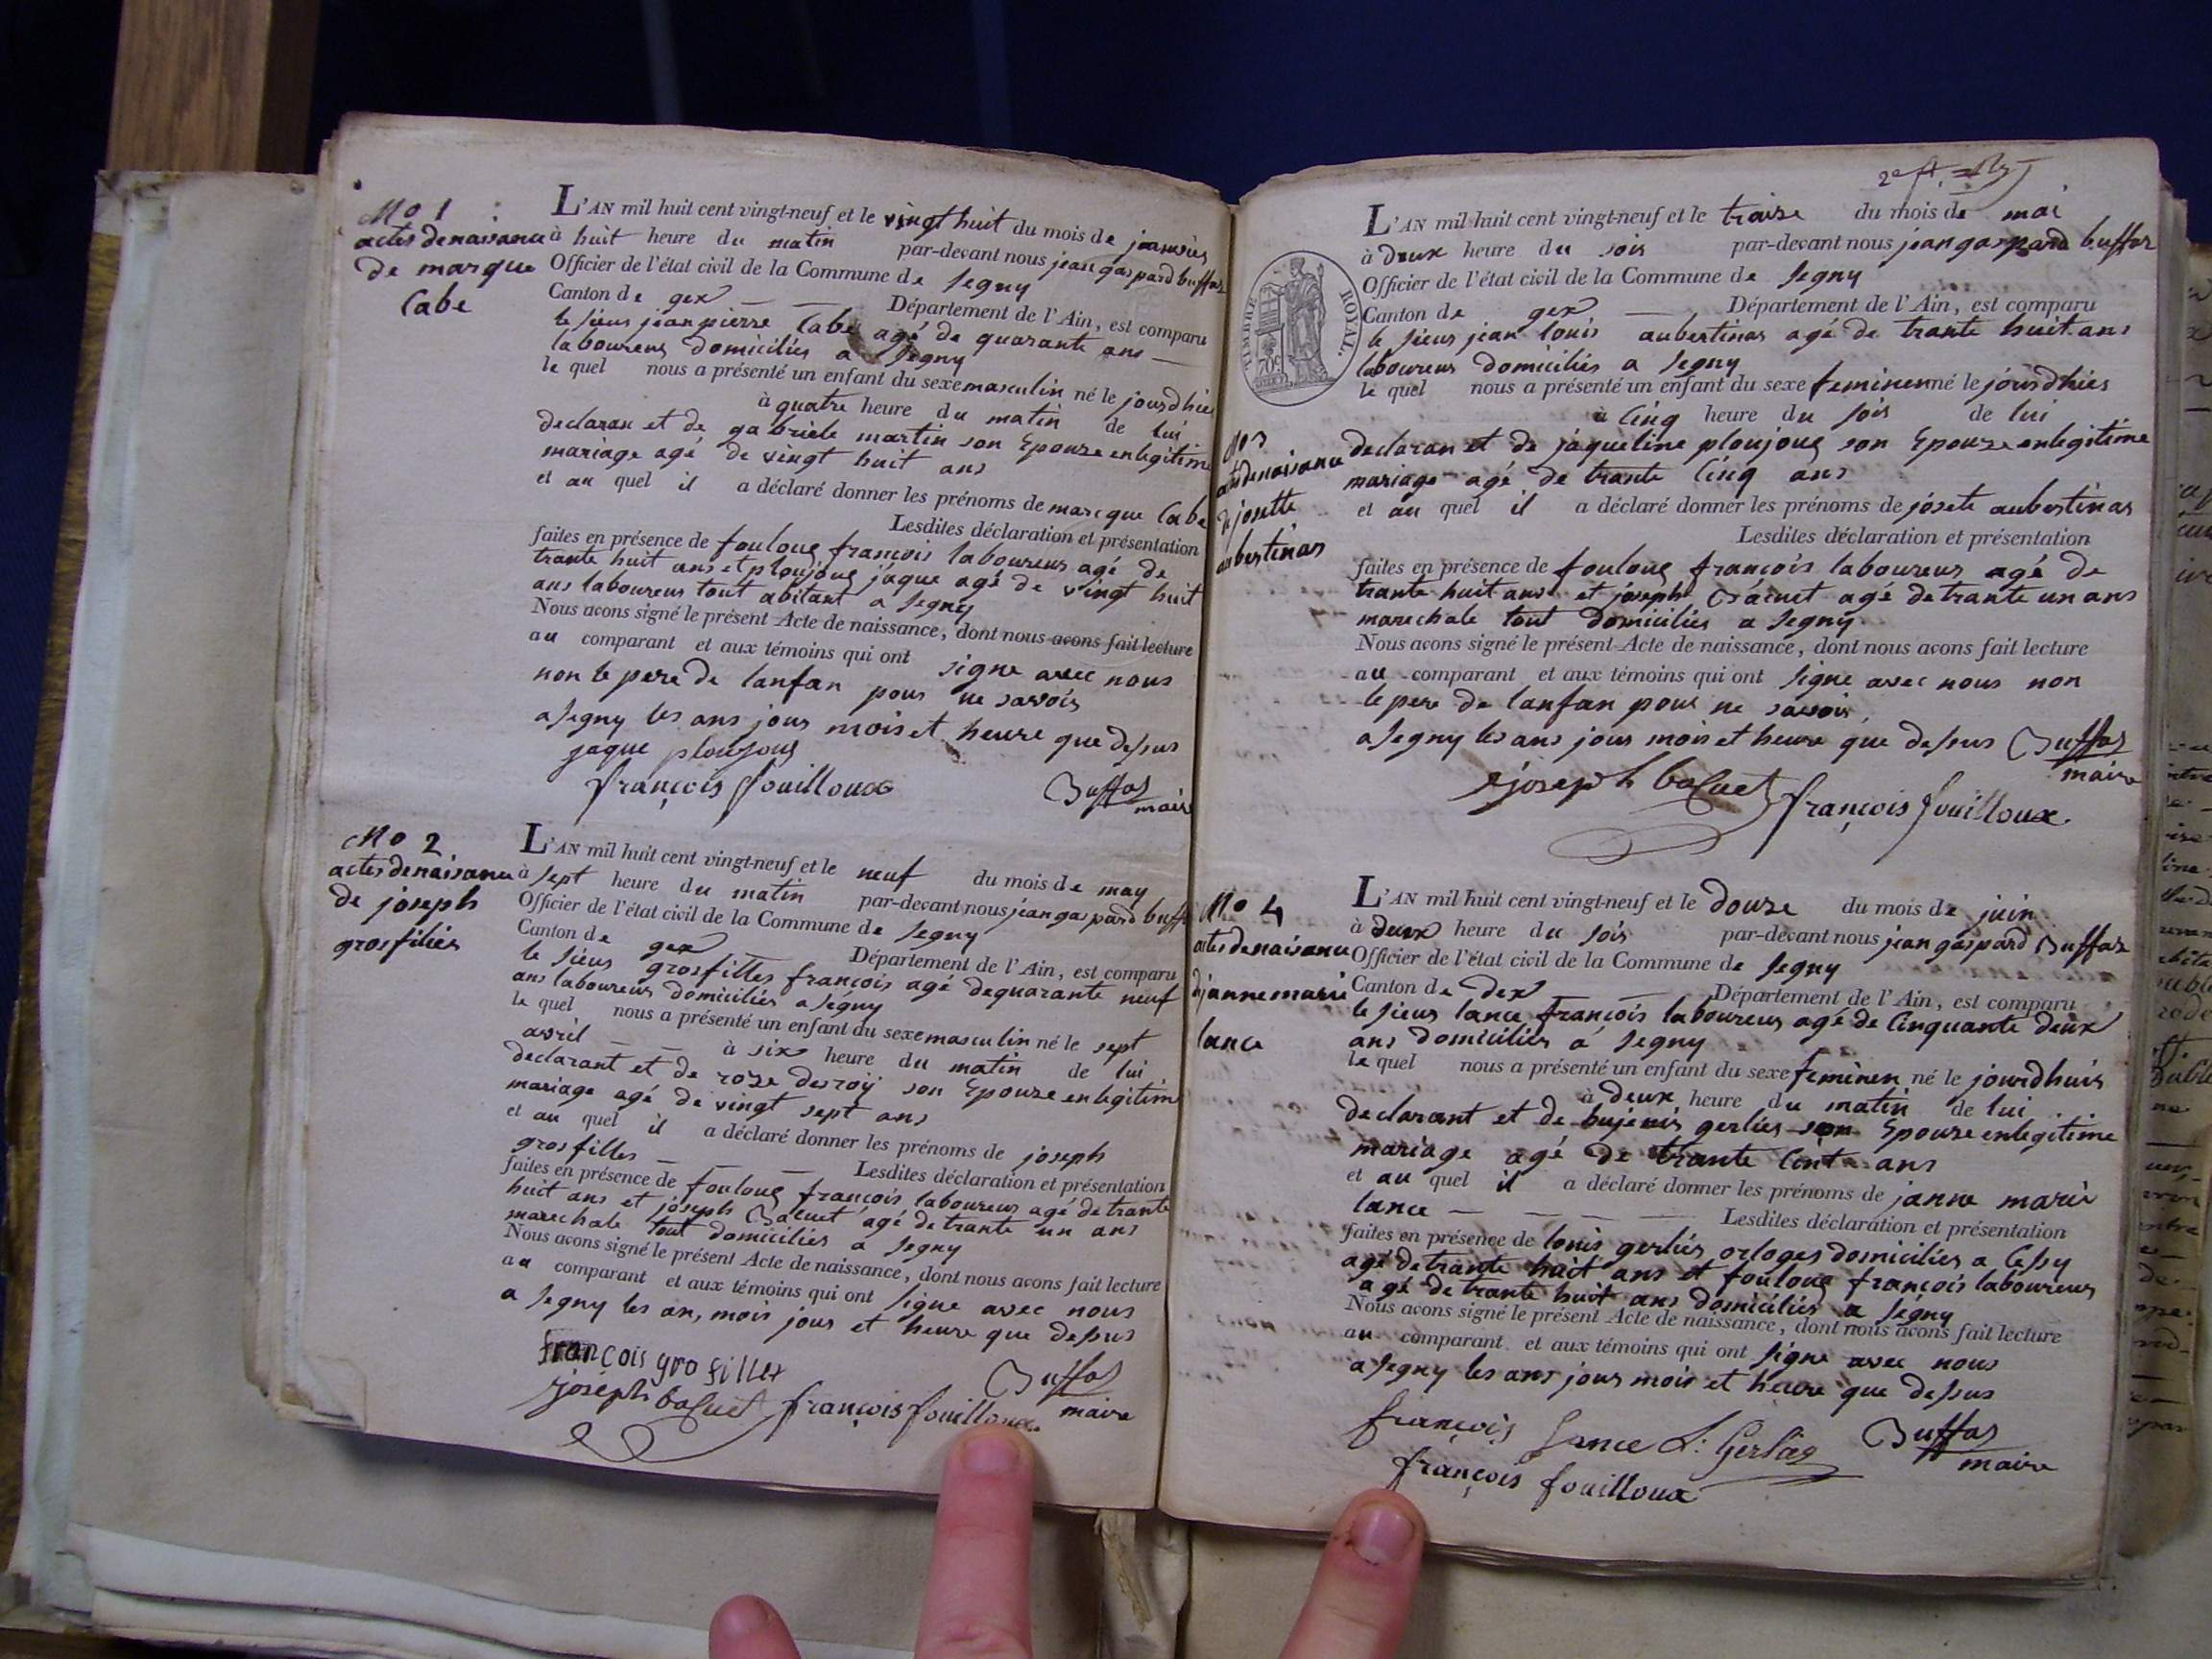 No 1
actes denaisance
de marque
Cabe
L'AN mil huit cent vingt-neuf et le vingt huit du mois de janvier
à huit heure du matin par-devant nous jean gaspard buffaz
Officier de l'état civil de la Commune de Segny
Canton de gex Département de l'Ain, est comparu
le sieur jean pierre Cabe agé de quarante ans
laboureur domiciliés a Segny
le quel nous a présenté un enfant du sexe masculin né le jourdhie
à quatre heure du matin de lui
declaran et de gabriele martin son Epouze enlegitime
mariage agé de vingt huit ans
et au quel il a déclaré donner les prénoms de marique Cabe
Lesdites déclaration et présentation
faites en présence de fouloug françois laboureur agé de
trante huit ans et ploujoug jaque agé de vingt huit
ans laboureur tout abitant a Segny
Nous avons signé le présent Acte de naissance, dont nous avons fait lecture
au comparant et aux témoins qui ont signe avec nous
non le pere de lanfan pour ne savoir
a Segny les ans jour mois et heure que dessus
jaque ploujoug
françois fouilloux
Buffaz
maire
No 2
actes denaisance
de joseph
grosfiliés
L'AN mil huit cent vingt-neuf et le neuf du mois de may
à sept heure du matin par-devant nous jean gaspard buffa
Officier de l'état civil de la Commune de Segny
Canton de gex Département de l'Ain, est comparu
le sieur grosfilles françois agé dequarante neuf
ans laboureur domiciliés a Segny
le quel nous a présenté un enfant du sexe masculin né le sept
avril à six heure du matin de lui
declarant et de roze desroy son Epouze enlegitime
mariage agé de vingt sept ans
et au quel il a déclaré donner les prénoms de joseph
grosfilles Lesdites déclaration et présentation
faites en présence de fouloug françois laboureur agé de trante
huit ans et joseph Baluet agé de trante un ans
marechale tout domiciliés a Segny
Nous avons signé le présent Acte de naissance, dont nous avons fait lecture
au comparant et aux témoins qui ont signe avec nous
a Segny les an, mois jour et heure que dessus
francois grofillex
joseph baluet françois fouilloux
Buffaz
maire
TIMBRE ROYAL.
70C
L'AN mil huit cent vingt-neuf et le traize du mois de mai
à deux heure du soir par-devant nous jean gaspard buffaz
Officier de l'état civil de la Commune de Segny
Canton de gex Département de l'Ain, est comparu
le sieur jean louis aubertinas agé de trante huit ans
laboureur domiciliés a Segny
le quel nous a présenté un enfant du sexe feminen né le jourdhies
à Cinq heure du soir de lui
No 3
actes denaisance
de josette
aubertinas
declaran et de jaqueline ploujoug son Epouze enlegitime
mariage agé de trante Cinq ans
et au quel il a déclaré donner les prénoms de josete aubertinas
Lesdites déclaration et présentation
faites en présence de fouloug françois laboureur agé de
trante huit ans et joseph Baluet agé de trante un ans
marechale tout domiciliés a Segny
Nous avons signé le présent Acte de naissance, dont nous avons fait lecture
au comparant et aux témoins qui ont signe avec nous non
le pere de lanfan pour ne savoir
a Segny les ans jour mois et heure que dessus Buffaz
maire
joseph baluet françois fouilloux
No 4
actes denaisance
de janne marie
lance
L'AN mil huit cent vingt-neuf et le douze du mois de juin
à deux heure du soir par-devant nous jean gaspard Buffaz
Officier de l'état civil de la Commune de Segny
Canton de Dex Département de l'Ain, est comparu
le sieur lance françois laboureur agé de Cinquante deux
ans domiciliés a Segny
le quel nous a présenté un enfant du sexe feminen né le jourdhuis
à deux heure du matin de lui
declarant et de gerlier son Epouze enlegitime
mariage agé de trante Cint ans
et au quel il a déclaré donner les prénoms de janne marie
lance Lesdites déclaration et présentation
faites en présence de louis gerliés orloges domiciliés a Cessy
agé de trante huit ans et fouloug françois laboureur
agé de trante huit ans domiciliés a Segny
Nous avons signé le présent Acte de naissance, dont nous avons fait lecture
au comparant et aux témoins qui ont signe avec nous
a Segny les ans jour mois et heure que dessus
françois Lance L: Gerlier Buffaz
maire
françois fouilloux